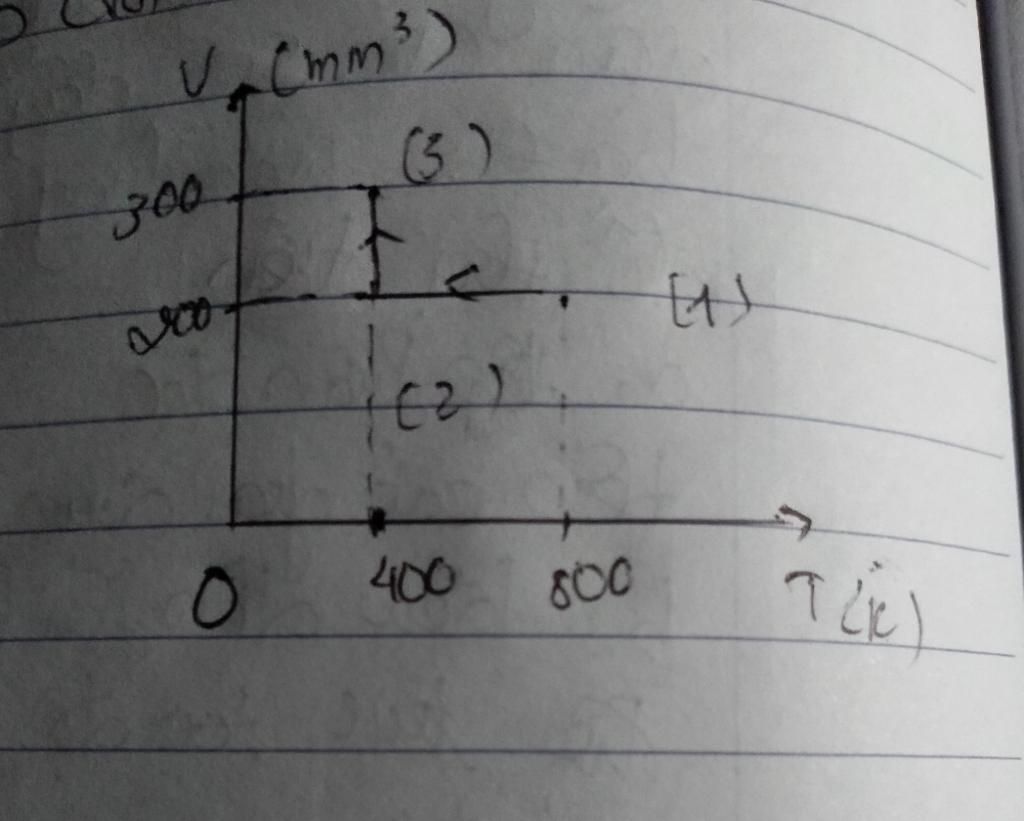 V (mm³)
(3)
300
200
(1)
(2)
0 400 800 T (K)